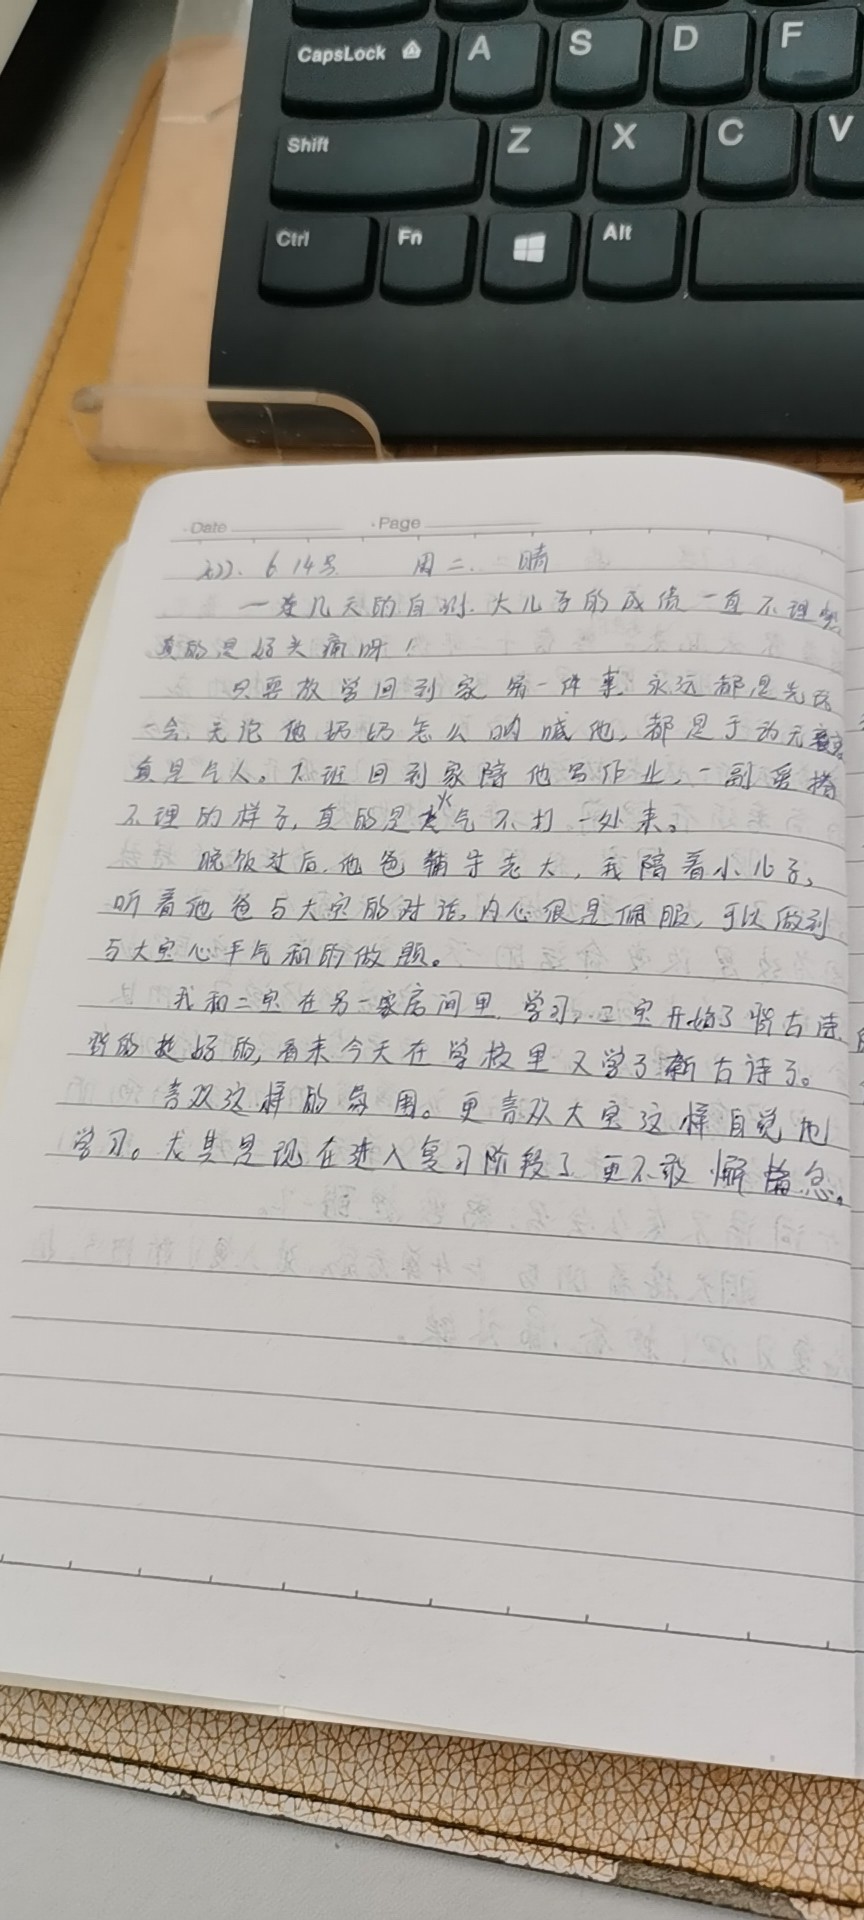 CapsLock A S D F
Shift Z X C V
Ctrl Fn Alt
Date Page
2022. 6 14号 周二. 晴
一连几天的自测.大儿子的成绩一直不理想
真的是好头痛呀!
只要放学回到家第一件事.永远都是先玩
一会,无论他奶奶怎么呐喊他,都是于动无衷
真是气人。下班回到家陪他写作业,一副爱搭
不理的样子,真的是火气不打一处来。
晚饭过后.他爸辅导老大,我陪着小儿子,
听着他爸与大宝的对话,内心很是佩服,可以做到
与大宝心平气和的做题。
我和二宝在另一家房间里.学习,二宝开始了背古诗.
背的挺好的,看来今天在学校里又学了新古诗了。
喜欢这样的氛围。更喜欢大宝这样自觉地
学习。尤其是现在进入复习阶段了更不敢懈怠。